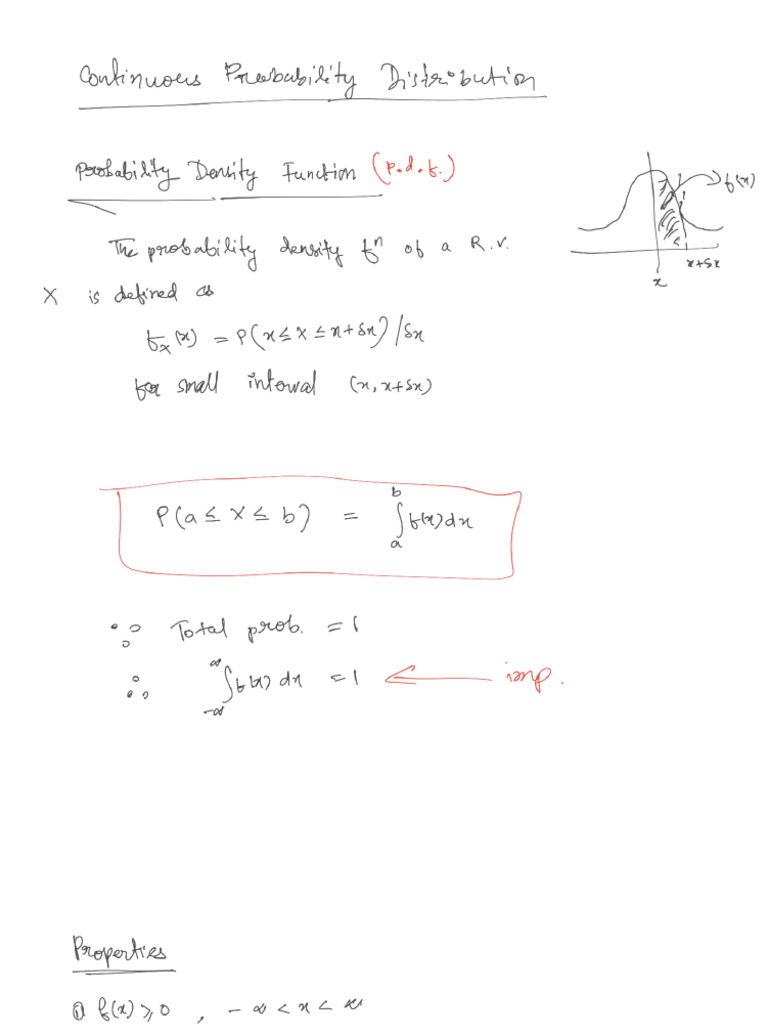 Continuous Probability Distribution
Probability Density Function (p.d.f.)
f(x)
x+δx
x
The probability density fⁿ of a R.V.
X is defined as
fₓ(x) = P(x ≤ X ≤ x+δx)/δx
for small interval (x, x+δx)
P(a ≤ X ≤ b) = ∫ₐᵇ f(x) dx
∵ Total prob. = 1
∴ ∫₋∞^∞ f(x) dx = 1 ⟸ imp.
Properties
① f(x) ⩾ 0 , -∞ < x < ∞